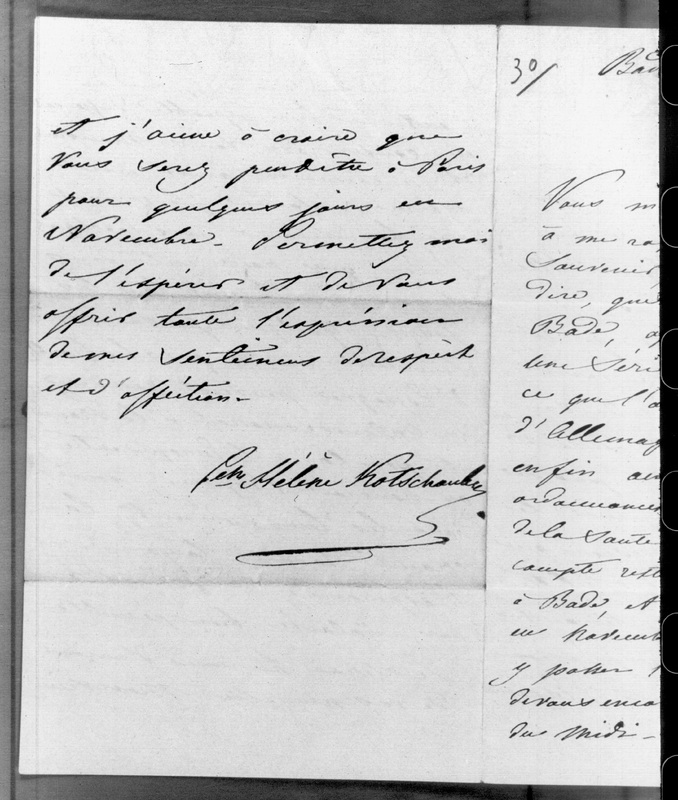 et j'aime à croire que
Vous serez peudètre à Paris
pour quelques jours en
Novembre. Permettez moi
de l'espérer et de Vous
offrir toute l'expréssion
de mes sentimens de respèct
et d'afféction.
Hélène Kotschoubey
30/
Vous
à me
Souvenir
dire, que
Bade,
une
ce que l'
d'Allemag
enfin
ordonnances
de la Santé
compte
à Bade, et
en Novemb
y passer
de vous enco
du Midi -